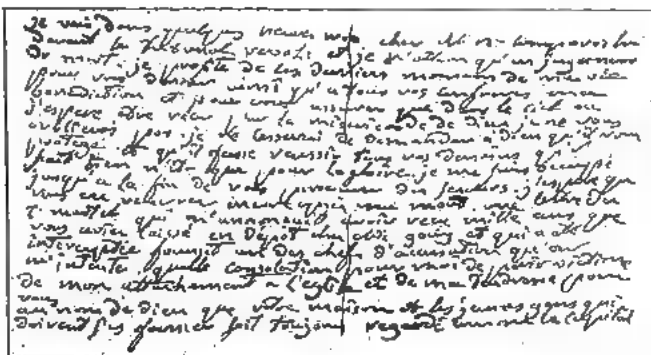 je vais dans quelques heures mon cher M. comparoître
devant le tribunal et je n'attens qu'un jugement
de mort. je profite de les derniers momens de ma vie
pour vous donner ainsi qu'a tous vos confreres ma
benediction et pour vous assurer que dans le ciel ou
j'espere être reçu par la misericorde de dieu je ne vous
oublierai pas. je ne cesserai de demander a dieu qu'il vous
protege et qu'il fasse reussir tous vos desseins qui
font bien que pour la gloire. je me suis occupé
jusqu'a la fin de vous procurer des secours. j'espere que
vous en recevrez encore après ma mort. une lettre du
1 mars et qui m'annonçoit avoir reçu mille ecus que
vous aviez laissé en dépôt et qui a été
interceptée fournit un des chefs d'accusation qu'on
m'intente. quelle consolation pour moi de perir victime
de mon attachement a l'eglise et de ma tendresse pour
vous
au nom de dieu que votre maison et les jeunes gens qui
doivent s'y former soit toujours regardé comme